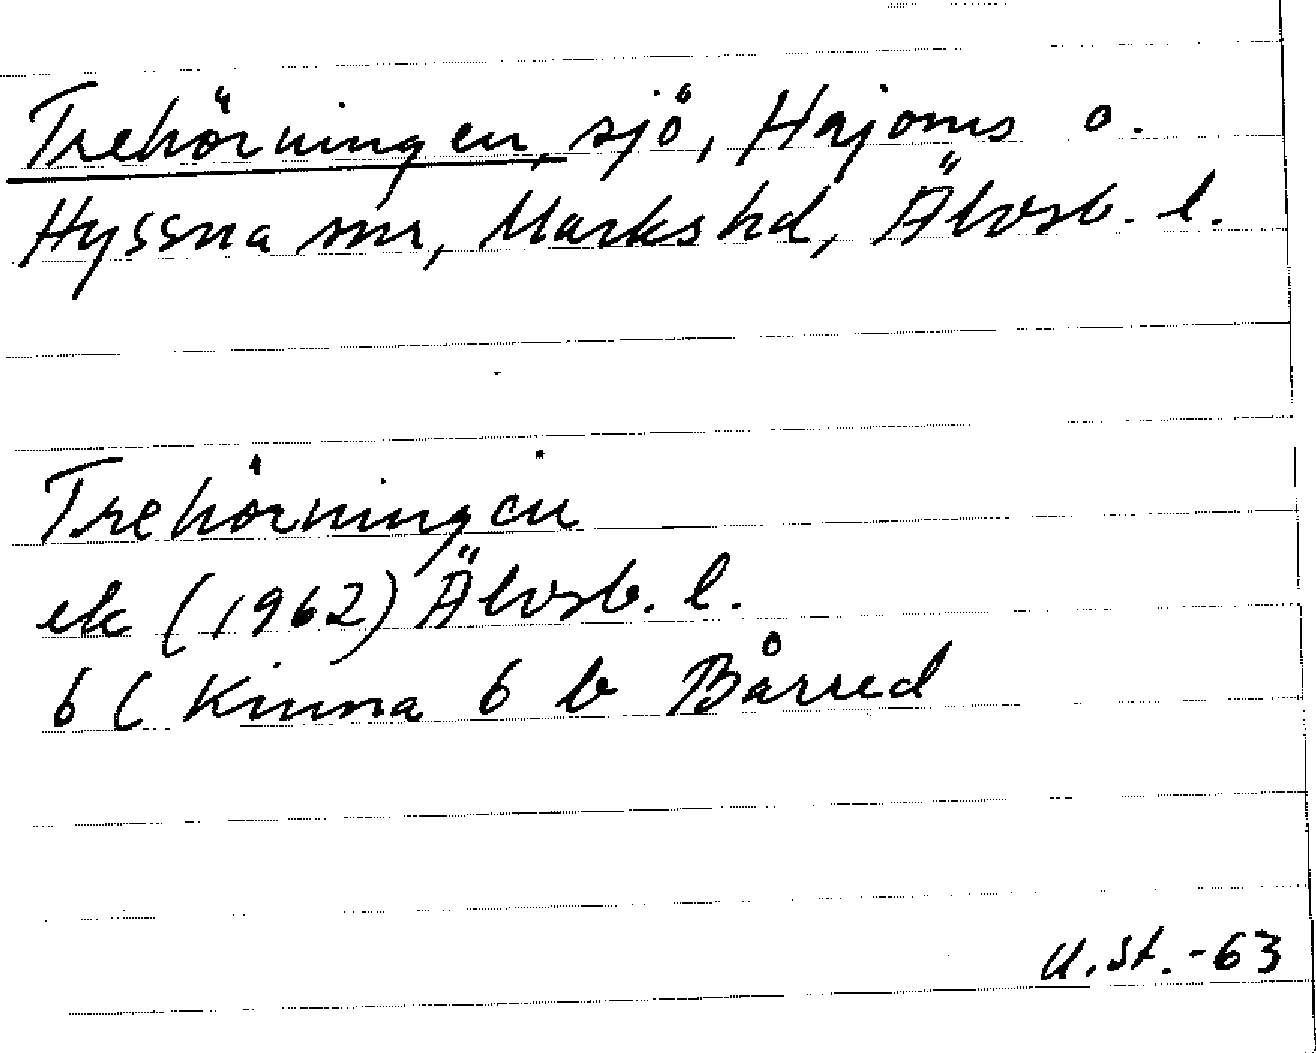 Trehörningen, sjö, Hajoms o.
Hyssna snr, Marks hd, Älvsb. l.
Trehörningen
ek (1962) Älvsb. l.
6 ( Kinna 6 b Bårred
U.St.-63